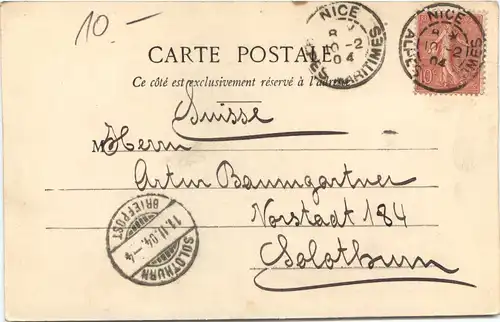 10 –
NICE
8 M
10 -2
04
ALPES MARITIMES
NICE
8 M
10 -2
04
ALPES MARITIMES
10
CARTE POSTALE
Ce côté est exclusivement réservé à l'adresse
Suisse
M Herrn
Artur Baumgartner
Vorstadt 184
Solothurn
BRIEFPOST
11.II.04.–4
SOLOTHURN